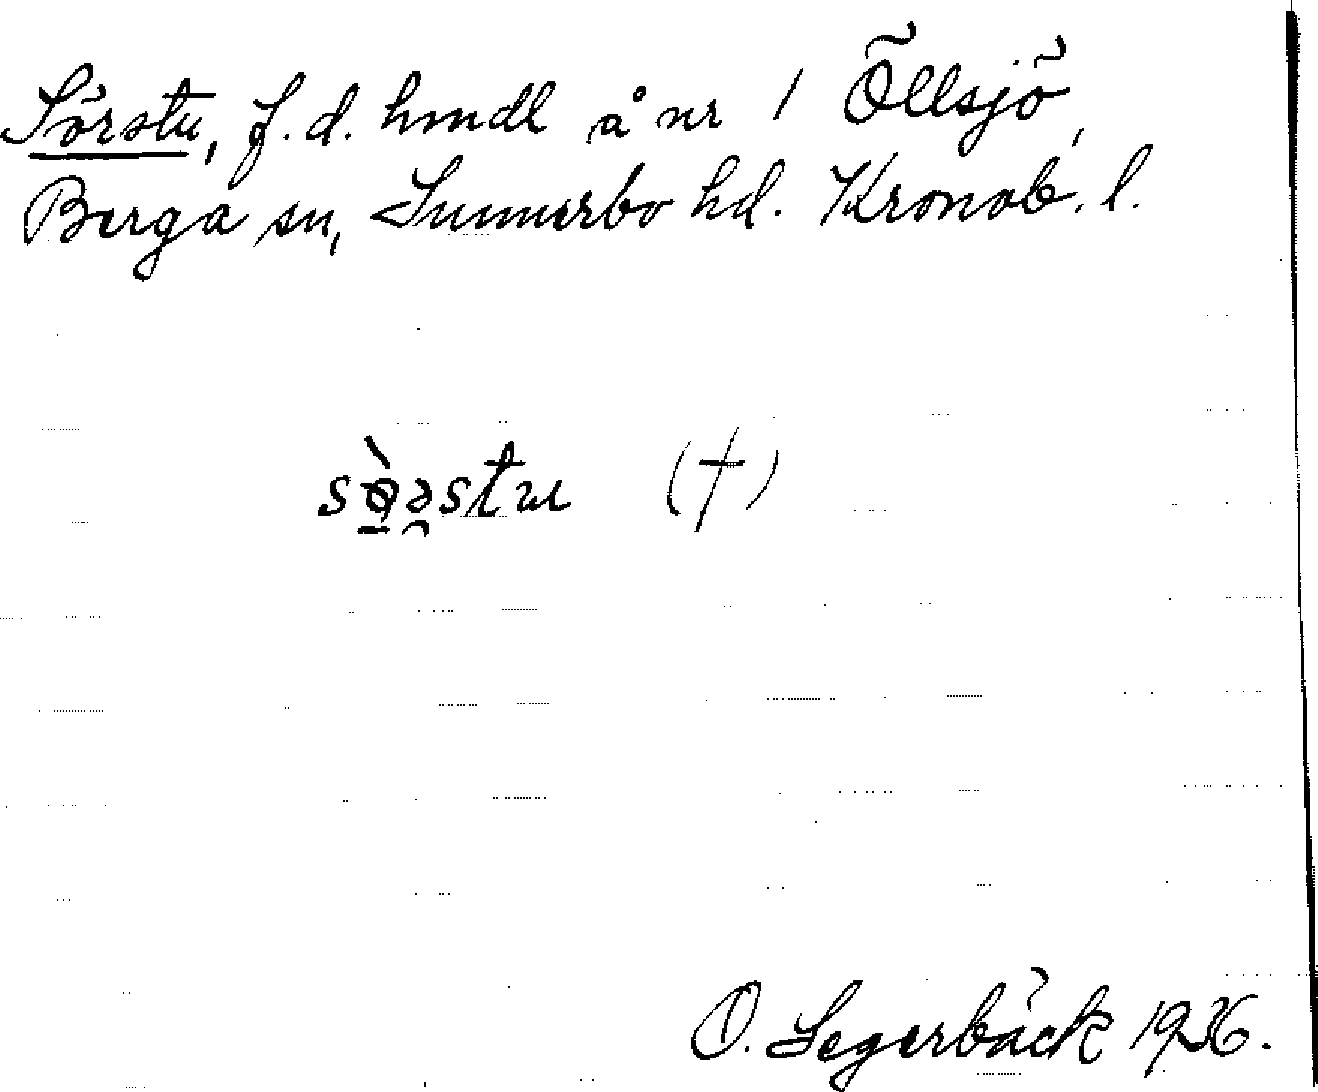 Sörstu, f.d. hmdl å nr 1 Öllsjö,
Berga sn, Sunnerbo hd. Kronob. l.
sɵ̀əstu (†)
O. Segerbäck 1936.